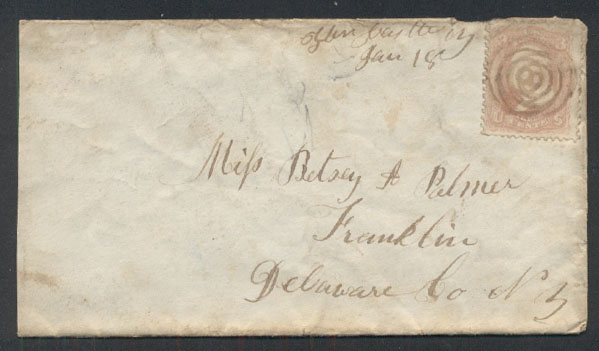 Glen Castle N y
Jan 18
Miss Betsey A Palmer
Franklin
Delaware Co N. Y
8